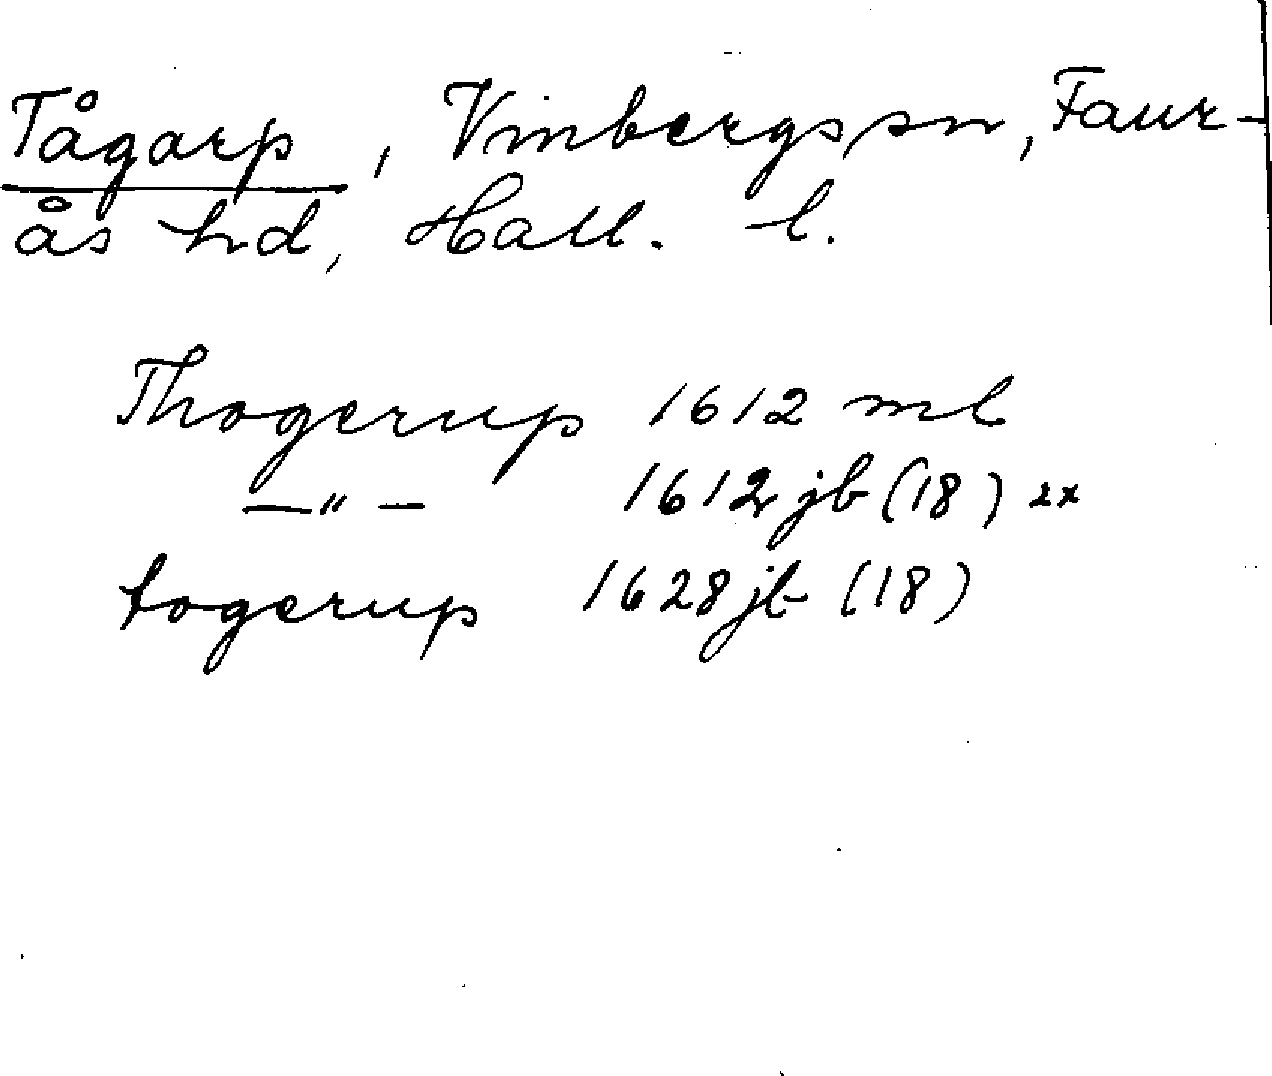 Tågarp, Vinbergs sn, Faur-
ås hd, Hall. l.
Thogerup 1612 ml
—〃— 1612 jb (18) 2x
togerup 1628 jb (18)